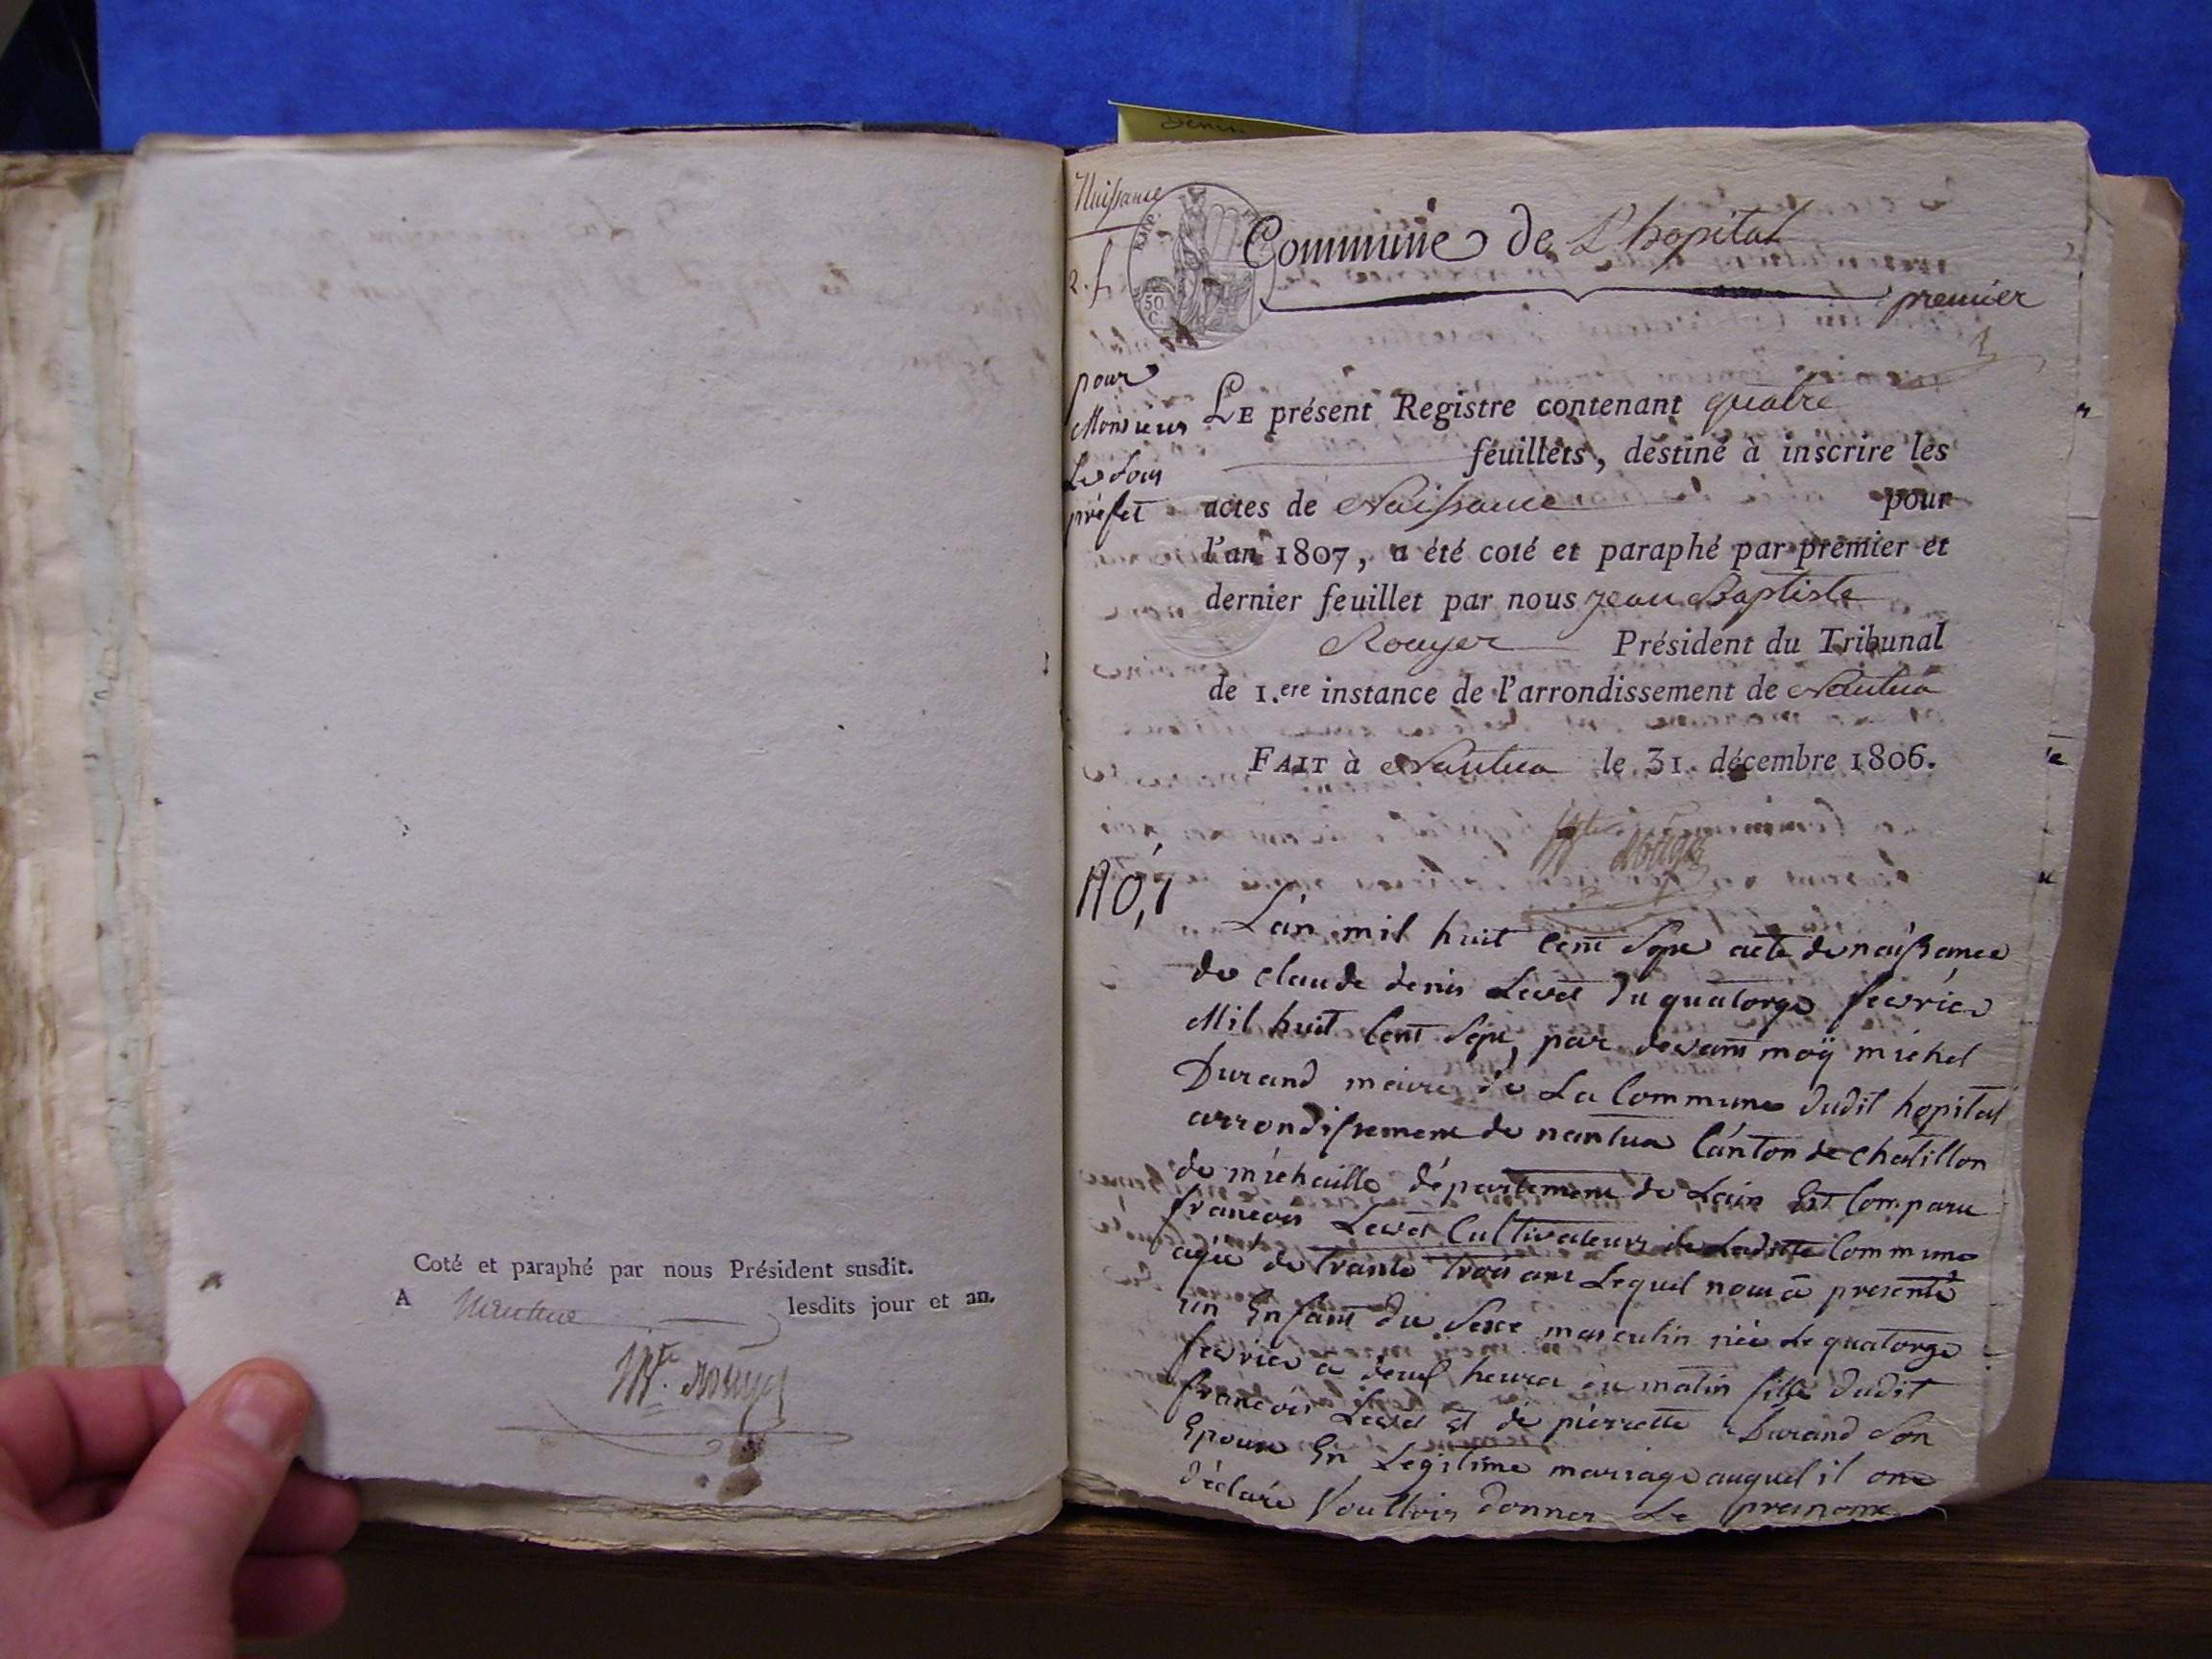 Coté et paraphé par nous Président susdit.
A Nantua lesdits jour et an.
JBte. Rouyer
denis
Naissance
2. f
EMP. FR.
50
C.
Commune de L'hopital
premier
pour
Monsieur
Le Sous
préfet
LE présent Registre contenant quatre
feuillets, destiné à inscrire les
actes de Naissance pour
l'an 1807, a été coté et paraphé par premier et
dernier feuillet par nous Jean Baptiste
Rouyer Président du Tribunal
de 1.ere instance de l'arrondissement de Nantua
FAIT à Nantua le 31. décembre 1806.
JBte Rouyer
L'an mil huit cent Sept acte de naissance
de claude denis Levet du quatorze fevrier
Mil huit Cent Sept, par devant moÿ michel
Durand maire de La Commune dudit hopital
arrondissement de nantua Canton de Chatillon
de michaille département de Lain Est Comparu
francois Levet Cultivateur de Ladite Commune
agée de trante trois ans Lequel nous a presenté
un Enfant du Sexe masculin née Le quatorze
fevrier a deux heures du matin fille dudit
francois Levet Et de pierrette Durand Son
Epouse En Legitime mariage auquel il ont
déclaré Voulloir donner Le prenome